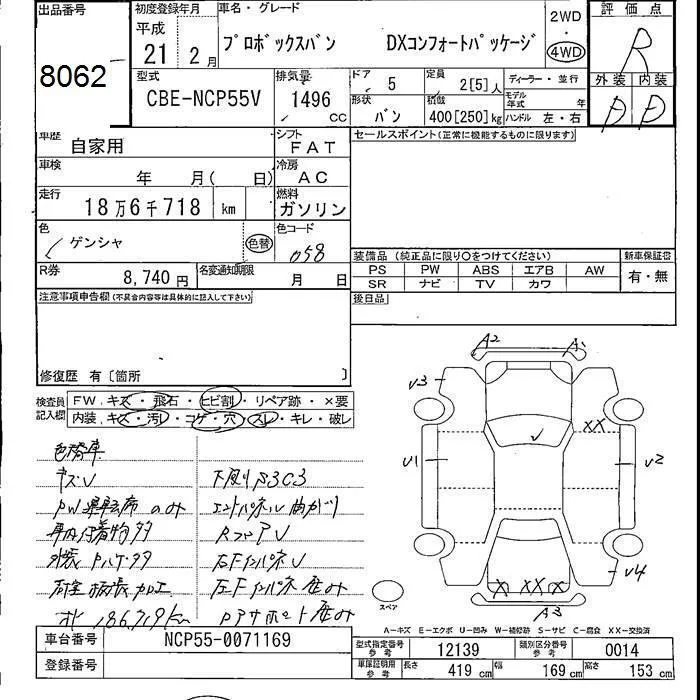 出品番号
8062
初度登録年月
平成
21 2月
車名・グレード
プロボックスバン DXコンフォートパッケージ
2WD
・
4WD
評価点
R
外装 内装
D D
型式
CBE-NCP55V
排気量
1496 CC
ドア 5
形状 バン
定員 2[5]人
積載 400[250]kg
ディーラー・並行
モデル年式 年
ハンドル 左・右
車歴 自家用
シフト FAT
車検 年 月( 日)
冷房 AC
走行 18万6千718 km
燃料 ガソリン
色 ゲンシャ 色替
色コード 058
R券 8,740円
名変通知期限 月 日
セールスポイント(正常に機能するものに限ります)
装備品(純正品に限り○をつけてください)
新車保証書
PS PW ABS エアB AW
SR ナビ TV カワ
有・無
後日品
注意事項申告欄(不具合内容等は具体的に記入して下さい)
修復歴 有〔箇所 〕
検査員記入欄
FW.キズ・飛石・ヒビ割・リペア跡・×要
内装.キズ・汚レ・コゲ・穴・スレ・キレ・破レ
色替車
キズU
PW運転席のみ
車内付着物多
下廻りS3C3
186719km
A2 A1
U3
XX
U1
U2
U4
X XX X
A3
スペア
A-キズ E-エクボ U-凹み W-補修跡 S-サビ C-腐食 XX-交換済
車台番号 NCP55-0071169
登録番号
型式指定番号 参考 12139
類別区分番号 参考 0014
車庫証明用 参考 長さ 419 cm 幅 169 cm 高さ 153 cm